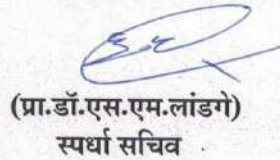 (प्रा.डॉ.एस.एम.लांडगे)
स्पर्धा सचिव